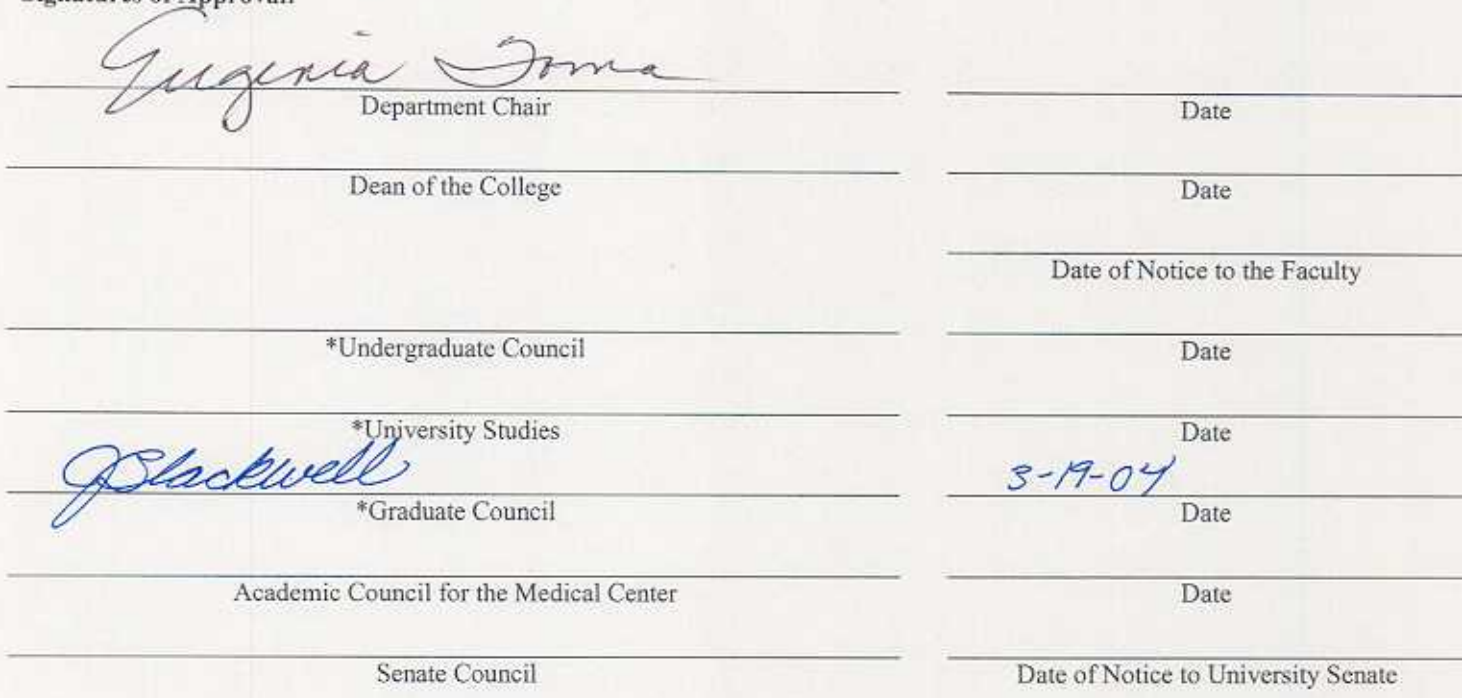 Signatures of Approval:
Eugenia Toma
Department Chair Date
Dean of the College Date
Date of Notice to the Faculty
*Undergraduate Council Date
*University Studies Date
JBlackwell 3-19-04
*Graduate Council Date
Academic Council for the Medical Center Date
Senate Council Date of Notice to University Senate